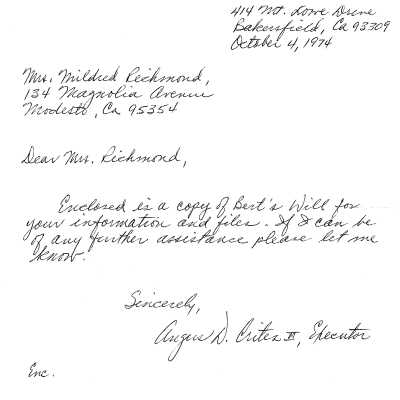 414 Mt. Lowe Drive
Bakersfield, Ca 93309
October 4, 1974
Mrs. Mildred Richmond,
134 Magnolia Avenue
Modesto, Ca 95354
Dear Mrs. Richmond,
Enclosed is a copy of Bert's Will for
your information and files. If I can be
of any further assistance please let me
know.
Sincerely,
Angus D. Crites II, Executor
Enc.